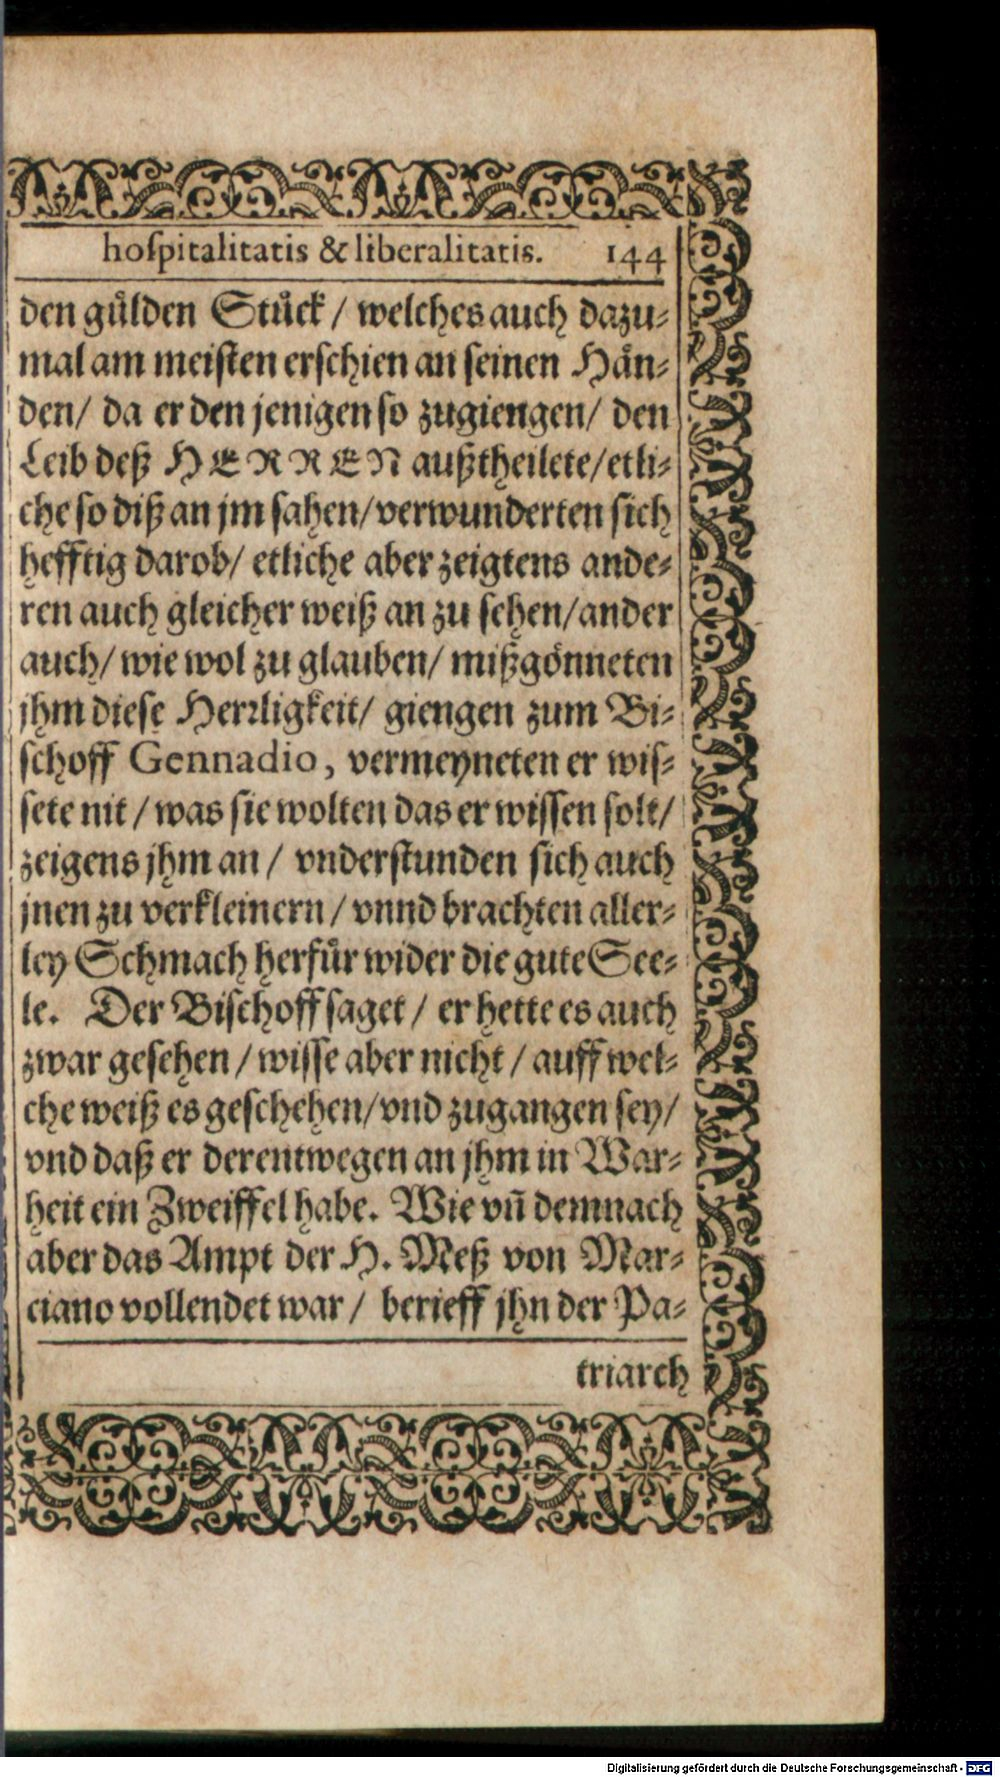 hoſpitalitatis & liberalitatis. 144
den guͤlden Stuͤck / welches auch dazu⸗
mal am meiſten erſchien an ſeinen Haͤn⸗
den/ da er den jenigen ſo zugiengen/ den
Leib deß HERREN außtheilete/etli⸗
che ſo diß an jm ſahen/verwunderten ſich
hefftig darob/ etliche aber zeigtens ande⸗
ren auch gleicher weiß an zu ſehen/ander
auch/ wie wol zu glauben/ mißgoͤnneten
jhm dieſe Herꝛligkeit/ giengen zum Bi⸗
ſchoff Gennadio, vermeyneten er wiſ⸗
ſete nit / was ſie wolten das er wiſſen ſolt/
zeigens jhm an / vnderſtunden ſich auch
jnen zu verkleinern / vnnd brachten aller⸗
ley Schmach herfuͤr wider die gute See⸗
le. Der Biſchoff ſaget / er hette es auch
zwar geſehen / wiſſe aber nicht / auff wel⸗
che weiß es geſchehen/vnd zugangen ſey/
vnd daß er derentwegen an jhm in War⸗
heit ein Zweiffel habe. Wie vñ demnach
aber das Ampt der H. Meß von Mar⸗
ciano vollendet war / berieff jhn der Pa⸗
triarch
Digitalisierung gefördert durch die Deutsche Forschungsgemeinschaft - DFG